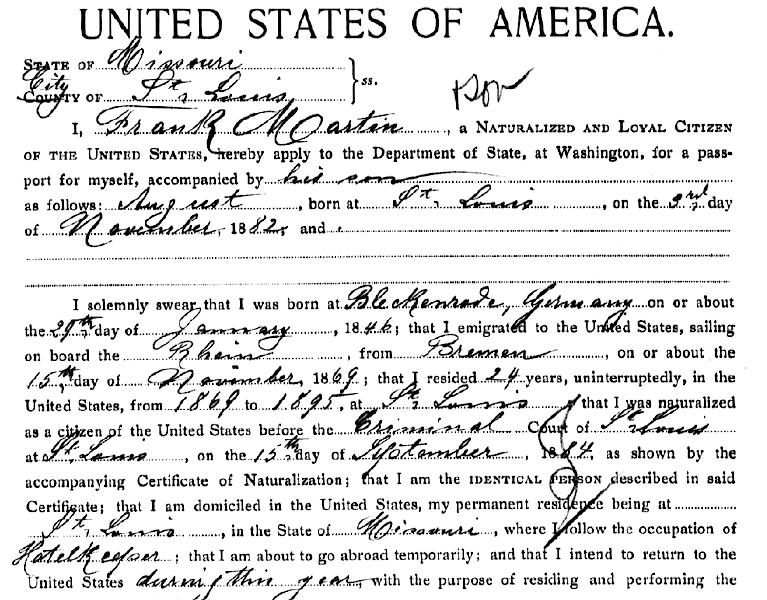 UNITED STATES OF AMERICA.
STATE OF Missouri
City
COUNTY OF St. Louis } ss.
son
I, Frank Martin, a NATURALIZED AND LOYAL CITIZEN
OF THE UNITED STATES, hereby apply to the Department of State, at Washington, for a pass-
port for myself, accompanied by his son
as follows: August, born at St. Louis, on the 3rd day
of November, 1882, and
I solemnly swear that I was born at Bleckenrode, Germany on or about
the 29th day of January, 1846; that I emigrated to the United States, sailing
on board the Rhein, from Bremen, on or about the
15th day of November, 1869; that I resided 24 years, uninterruptedly, in the
United States, from 1869 to 1895, at St. Louis, that I was naturalized
as a citizen of the United States before the Criminal Court of St. Louis
at St. Louis, on the 15th day of September, 1884, as shown by the
accompanying Certificate of Naturalization; that I am the IDENTICAL PERSON described in said
Certificate; that I am domiciled in the United States, my permanent residence being at
St. Louis, in the State of Missouri, where I follow the occupation of
Hotelkeeper; that I am about to go abroad temporarily; and that I intend to return to the
United States during this year, with the purpose of residing and performing the